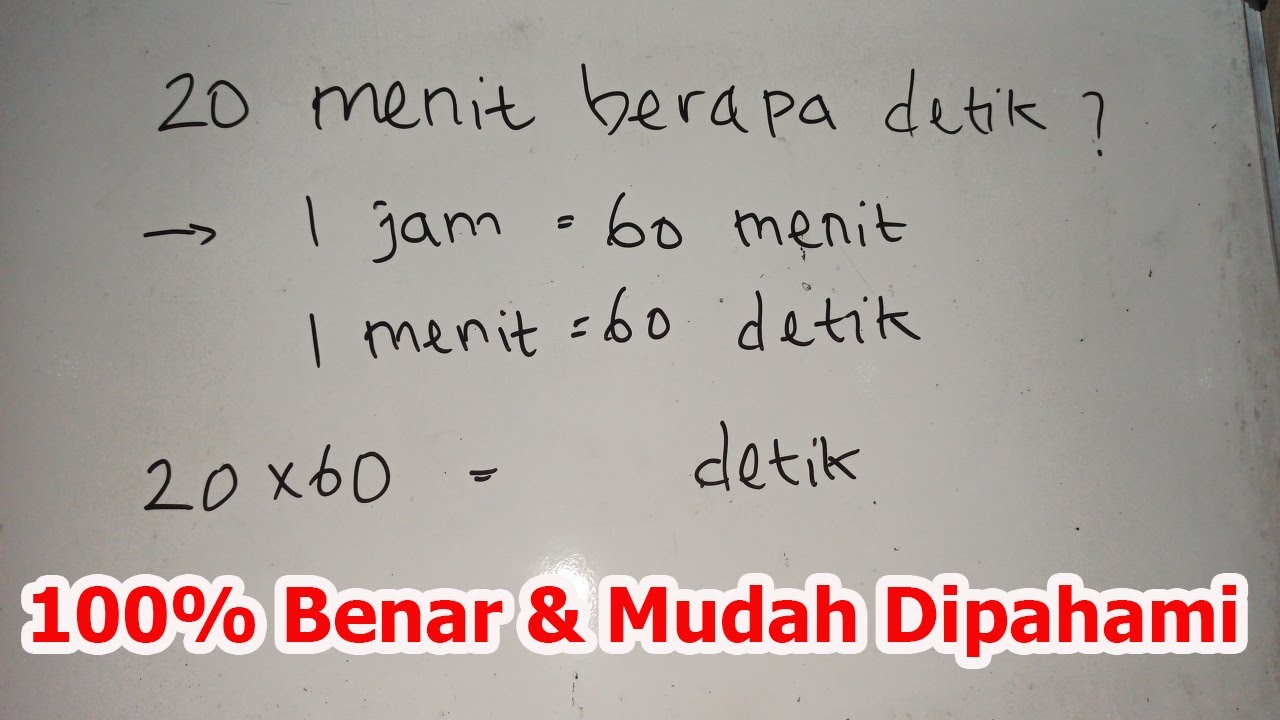 20 menit berapa detik ?
→ 1 jam = 60 menit
1 menit = 60 detik
20 x 60 = detik
100% Benar & Mudah Dipahami